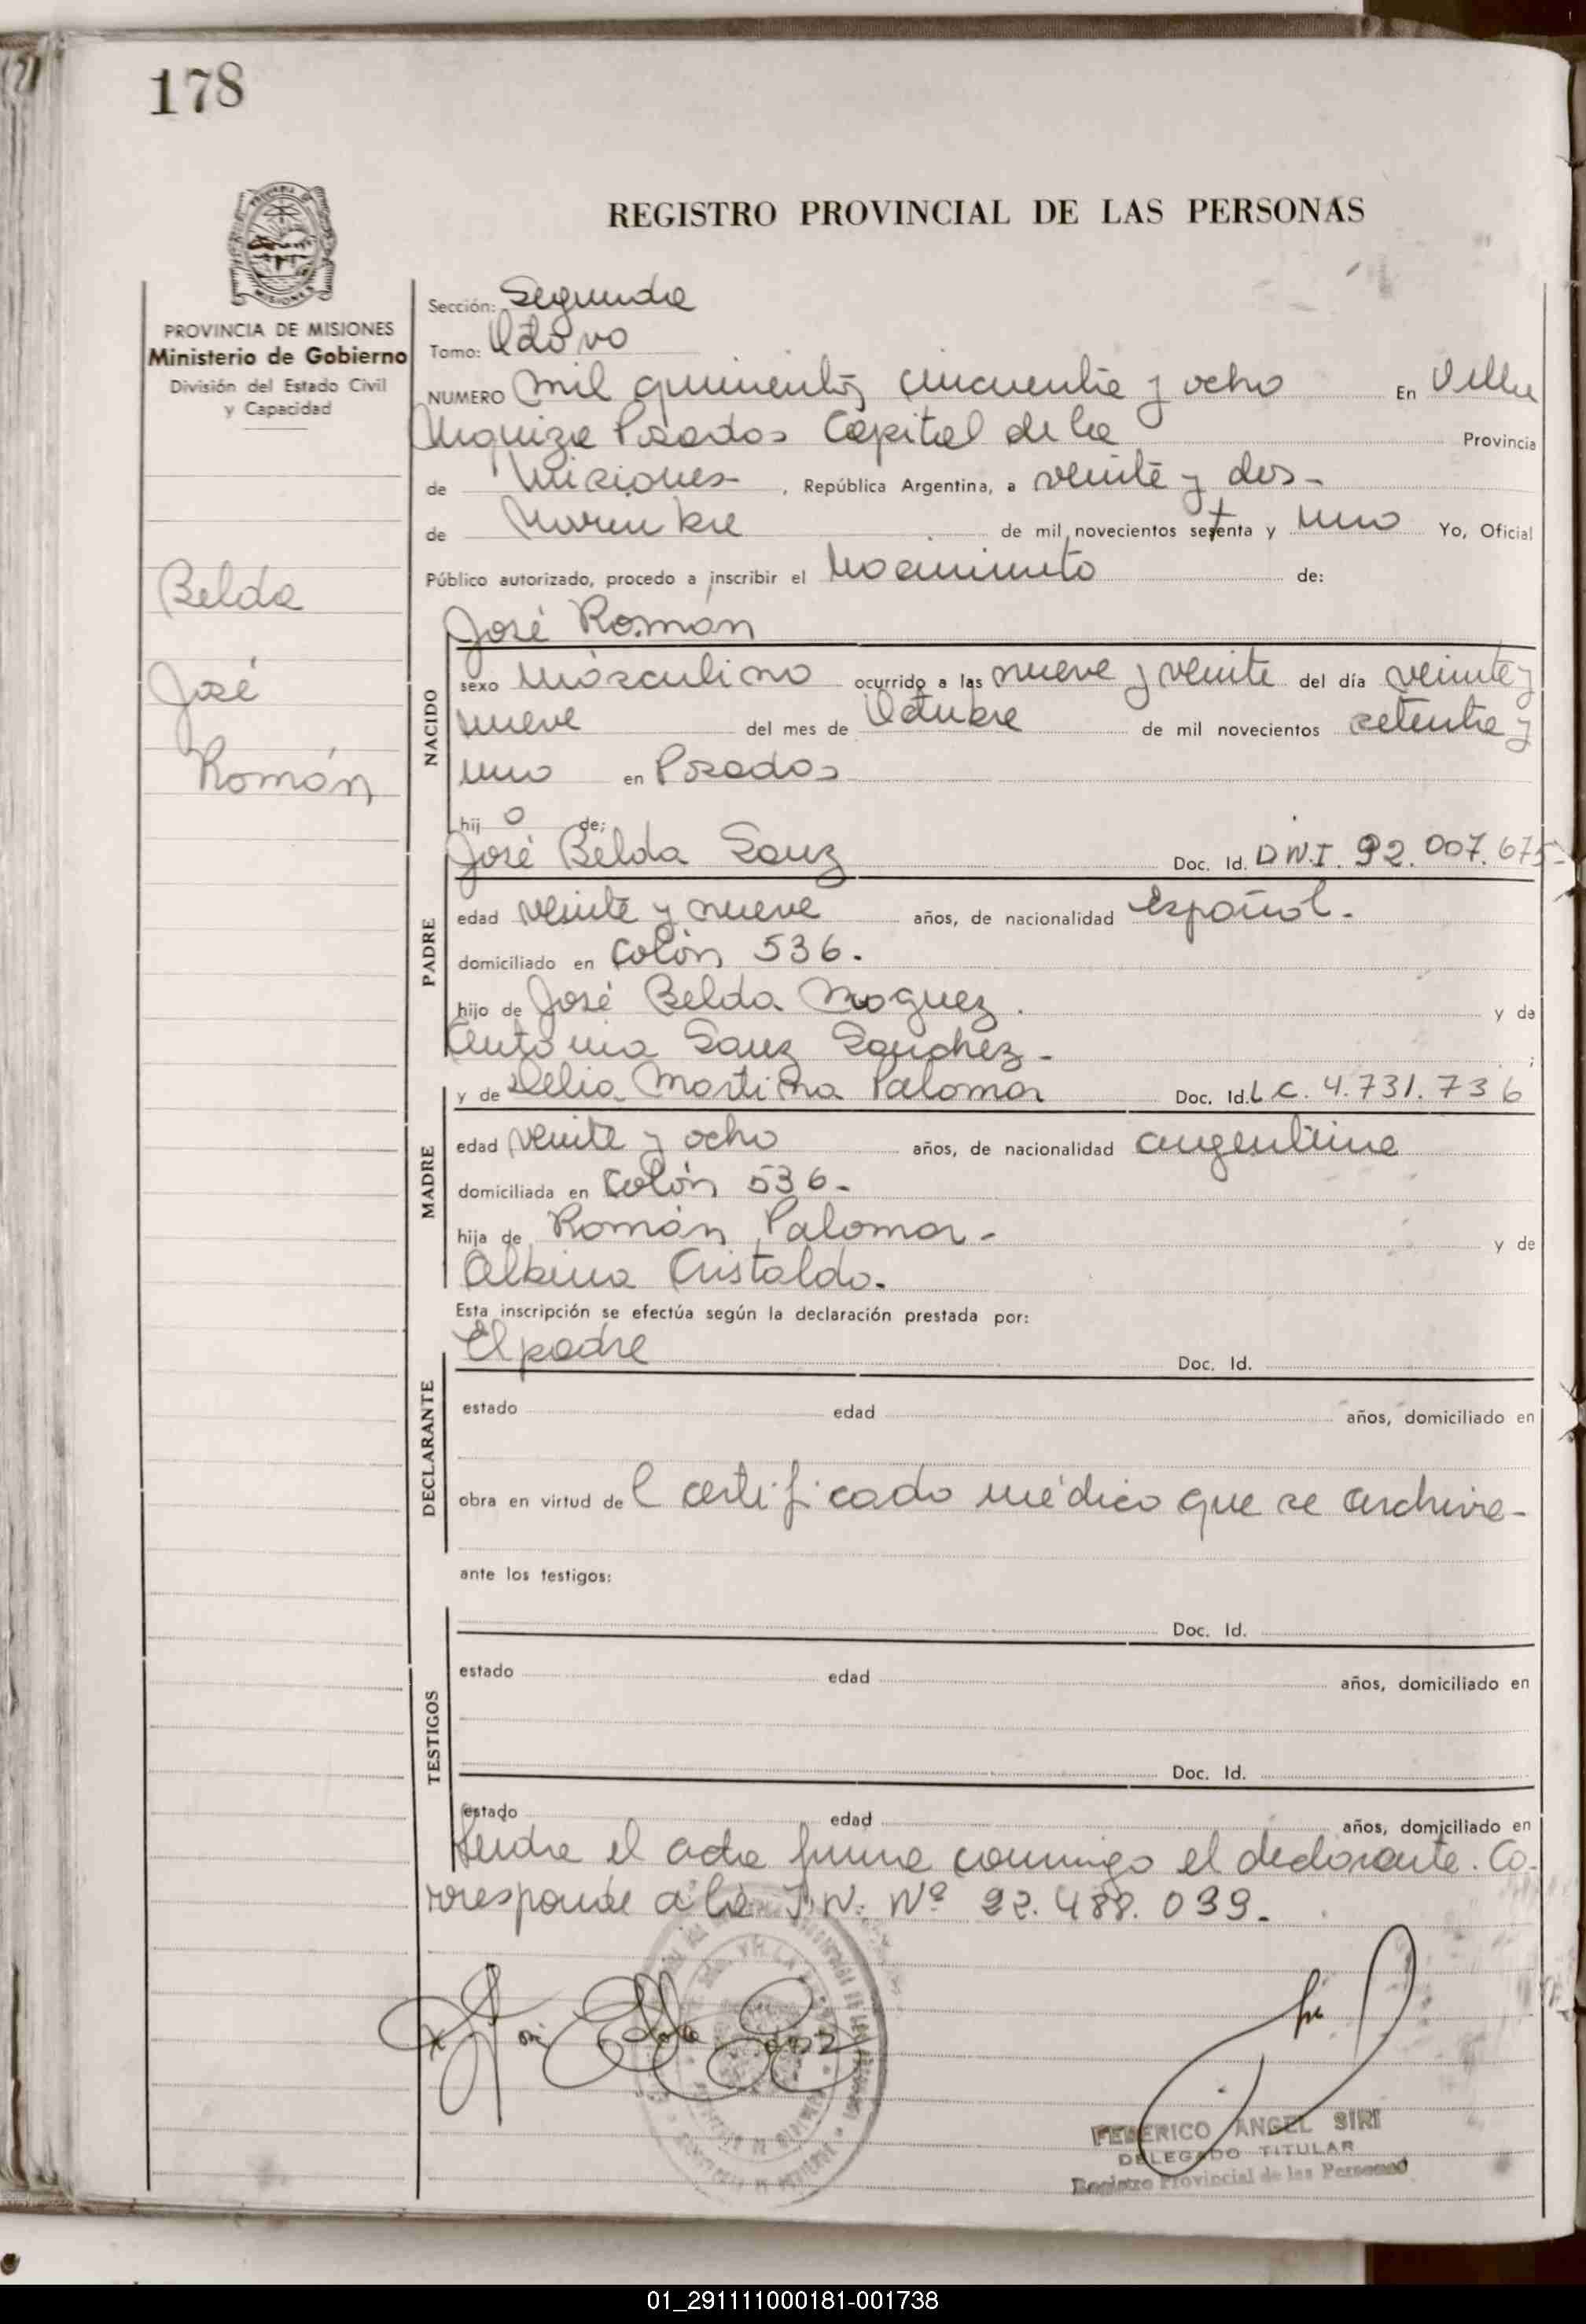 178
REGISTRO PROVINCIAL DE LAS PERSONAS
PROVINCIA DE MISIONES
Ministerio de Gobierno
División del Estado Civil
y Capacidad
Belda
José
Román
Sección: Segunda
Tomo: Octavo
NUMERO mil quinientos cincuenta y ocho En Villa
Urquiza Posadas Capital de la Provincia
de Misiones, República Argentina, a veinte y dos-
de Noviembre de mil novecientos setenta y uno Yo, Oficial
Público autorizado, procedo a inscribir el Nacimiento de:
José Román
NACIDO
sexo Masculino ocurrido a las nueve y veinte del día veinte y
nueve del mes de Octubre de mil novecientos setenta y
uno en Posadas
hijo de:
José Belda Sanz Doc. Id. D.N.I. 92.007.675-
PADRE
edad veinte y nueve años, de nacionalidad español.
domiciliado en Colón 536.
hijo de José Belda Moguez. y de
Antonia Sanz Sanchez-;
y de Delia Martina Palomar Doc. Id. L C. 4.731.736
MADRE
edad veinte y ocho años, de nacionalidad argentina
domiciliada en Colón 536-
hija de Román Palomar- y de
Albina Cristaldo.
Esta inscripción se efectúa según la declaración prestada por:
El padre Doc. Id.
DECLARANTE
estado edad años, domiciliado en
obra en virtud del certificado médico que se archiva-
ante los testigos:
Doc. Id.
TESTIGOS
estado edad años, domiciliado en
Doc. Id.
estado edad años, domiciliado en
Leída el acta firma conmigo el declarante. Co-
rresponde a la I.N. Nº 22.488.099.
José Belda Sanz
FEDERICO ANGEL SIRI
DELEGADO TITULAR
Registro Provincial de las Personas
01_291111000181-001738